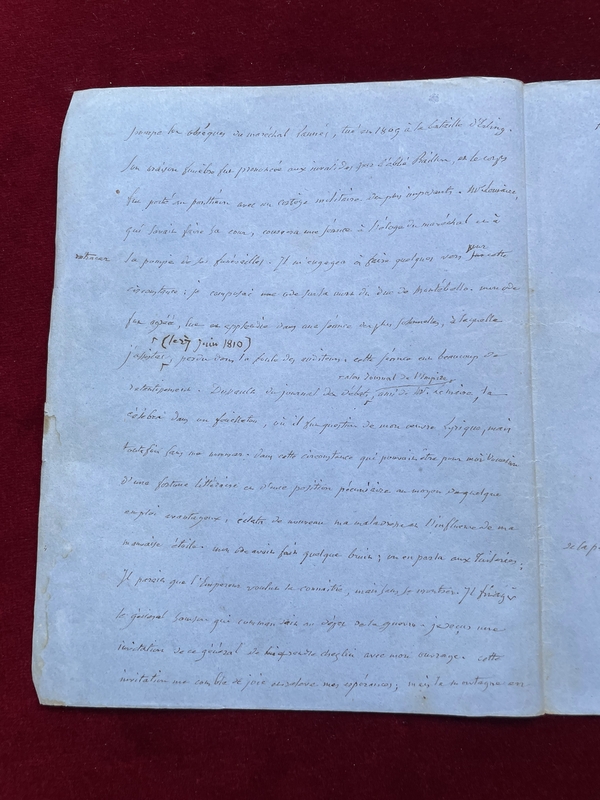 pompe les obsèques du maréchal Lannes, tué en 1809 à la bataille d'Esling.
Son oraison funèbre fut prononcée aux invalides par l'abbé Raillon, et le corps
fut porté au panthéon avec un cortège militaire des plus imposants.
qui savait faire sa cour, consacra une séance à l'éloge du maréchal et à
la pompe de ses funérailles. Il m'engagea à faire quelques vers pour cette
circonstance : je composai une ode sur la mort du Duc de Montébello. mon ode
fut agréée, lue et applaudie dans une séance des plus solennelles, à laquelle
(le 27 juin 1810)
j'assistai, perdu dans la foule des auditeurs. cette séance eut beaucoup de
alors Journal de l'Empire
retentissement. Dussault du journal des débats, ami de Mr. la
célébra dans un feuilleton, où il fut question de mon œuvre lyrique, mais
toutefois sans me nommer. dans cette circonstance qui pouvait être pour moi
d'une fortune littéraire et d'une position pécuniaire au moyen de quelque
emploi avantageux, éclata de nouveau ma maladresse et l'influence de ma
mauvaise étoile. mon ode avait fait quelque bruit ; on en parla aux Tuileries.
Il paraît que l'Empereur voulut la connaître, mais sans le montrer. Il
le général que commandait au dépôt de la guerre. je reçus une
invitation de ce général de me rendre chez lui avec mon ouvrage. cette
invitation me combla de joie et releva mes espérances ; mais la montagne